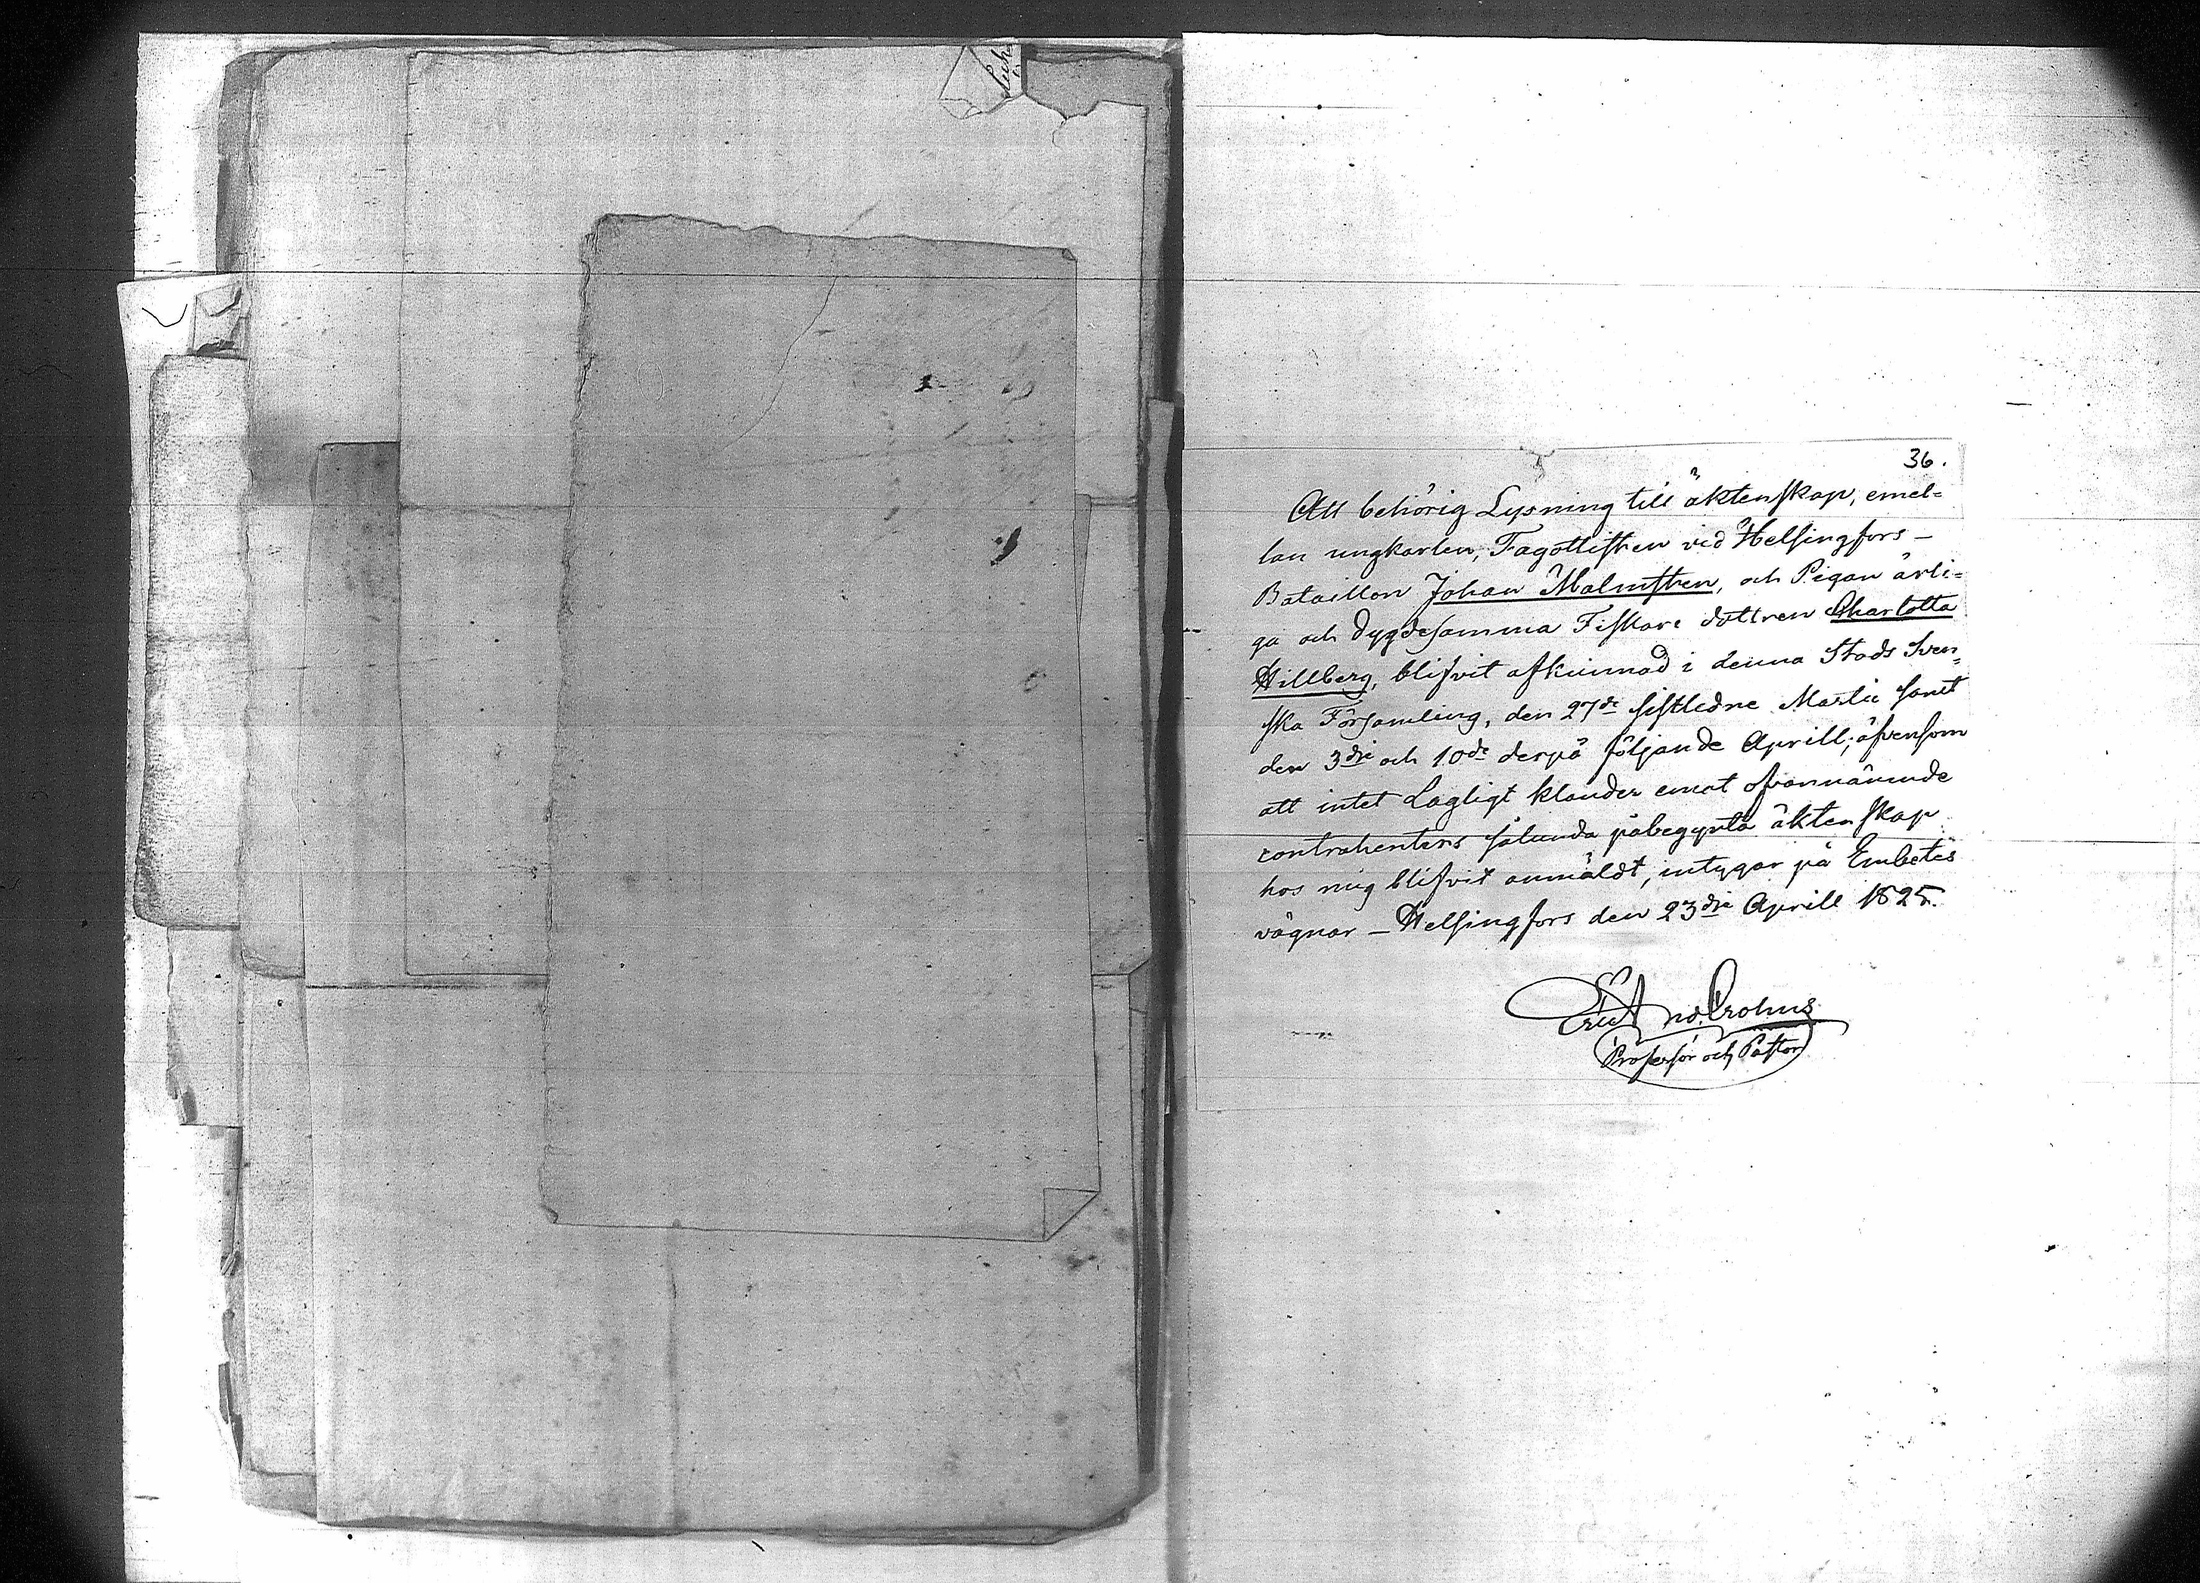 36.
Att behörig Lysning till äktenskap, emel=
lan ungkarlen, Fagottisten vid Helsingfors –
Bataillon Johan Malmsten, och Pigan ärli=
ga och dygdesamma Fiskare dottren Charlotta
Hillberg, blifvit afkunnad i denna Stads Sven=
ska Församling, den 27de sistledne Martii samt
den 3dje och 10de derpå följande Aprill; äfvensom
att intet Lagligt klander emot ofvannämnde
contrahenters sålunda påbegynta äktenskap
hos mig blifvit anmäldt, intygar på Embetes
vägnar – Helsingfors den 23dje Aprill 1825.
Eric And. Crohns
Professor och Pastor